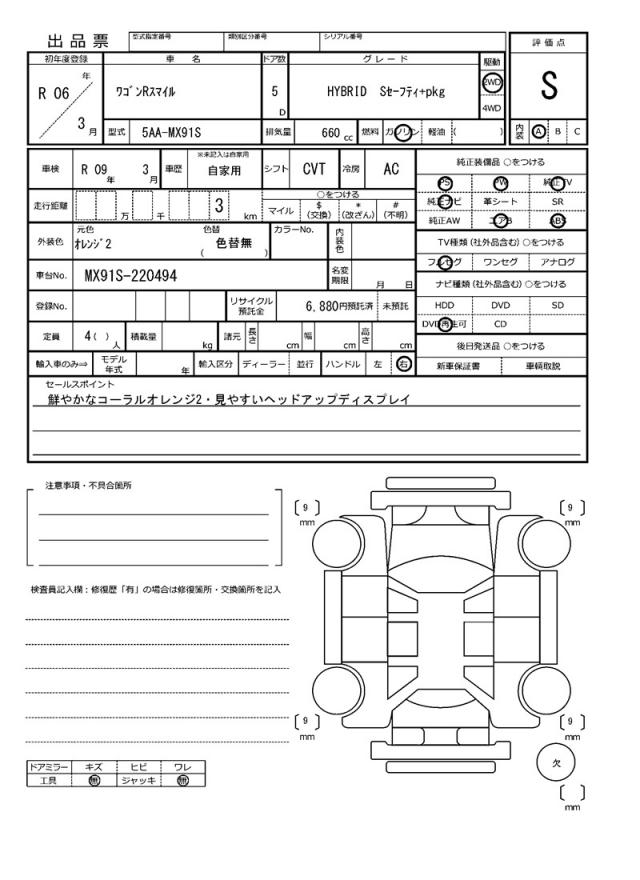 出品票
型式指定番号 類別区分番号 シリアル番号
評価点
S
初年度登録 車名 ドア数 グレード 駆動
R 06 年 3 月
ワゴンRスマイル
5 D
HYBRID Sセーフティ+pkg
2WD
4WD
型式 5AA-MX91S 排気量 660 cc 燃料 ガソリン 軽油 ( )
内装 A B C
車検 R 09 年 3 月 車歴 ※未記入は自家用 自家用 シフト CVT 冷房 AC
純正装備品 ○をつける
PS PW 純正TV
純正ナビ 革シート SR
純正AW エアB ABS
走行距離 万 千 3 km
○をつける
マイル $(交換) *(改ざん) #(不明)
TV種類(社外品含む)○をつける
フルセグ ワンセグ アナログ
外装色 元色 オレンジ2 色替 ( 色替無 ) カラーNo. 内装色
車台No. MX91S-220494 名変期限 月 日
ナビ種類(社外品含む)○をつける
HDD DVD SD
DVD再生可 CD
登録No. リサイクル預託金 6,880円預託済 未預託
定員 4( )人 積載量 kg 諸元 長さ cm 幅 cm 高さ cm
後日発送品 ○をつける
新車保証書 車輌取説
輸入車のみ⇒ モデル年式 年 輸入区分 ディーラー 並行 ハンドル 左 右
セールスポイント
鮮やかなコーラルオレンジ2・見やすいヘッドアップディスプレイ
注意事項・不具合箇所
検査員記入欄:修復歴「有」の場合は修復箇所・交換箇所を記入
[9] mm
[9] mm
[9] mm
[9] mm
欠
[ ] mm
ドアミラー キズ ヒビ ワレ
工具 無 ジャッキ 無